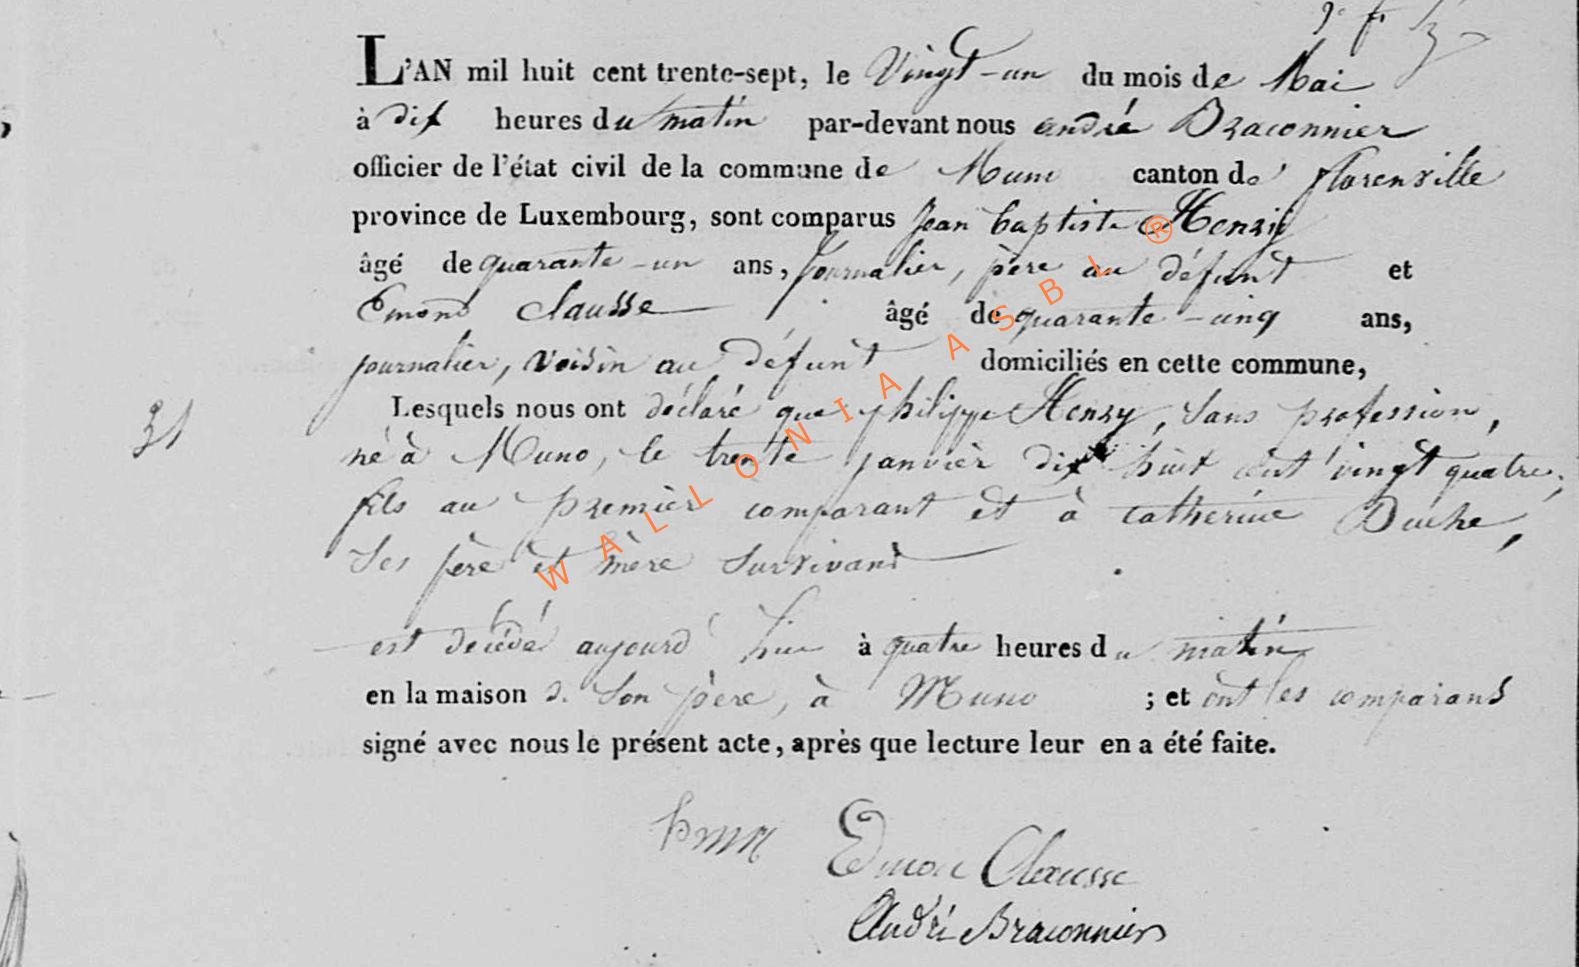 L'AN mil huit cent trente-sept, le Vingt-un du mois de Mai
à dix heures du matin par-devant nous andré Braconnier
officier de l'état civil de la commune de Muno canton de florenville
province de Luxembourg, sont comparus Jean baptiste Henry
âgé de quarante-un ans, journalier, père au défunt et
Emond Clausse âgé de quarante-cinq ans,
journalier, voisin au défunt domiciliés en cette commune,
Lesquels nous ont déclaré que philippe Henry, sans profession,
31
né à Muno, le trente janvier dix huit cent vingt quatre,
fils au premier comparant et à catherine
ses père et mère survivant
est décédé aujourd'hui à quatre heures du matin
en la maison de son père, à Muno ; et ont les comparans
signé avec nous le présent acte, après que lecture leur en a été faite.
Clausse
André Braconnier
WALLONIA ASBL ®